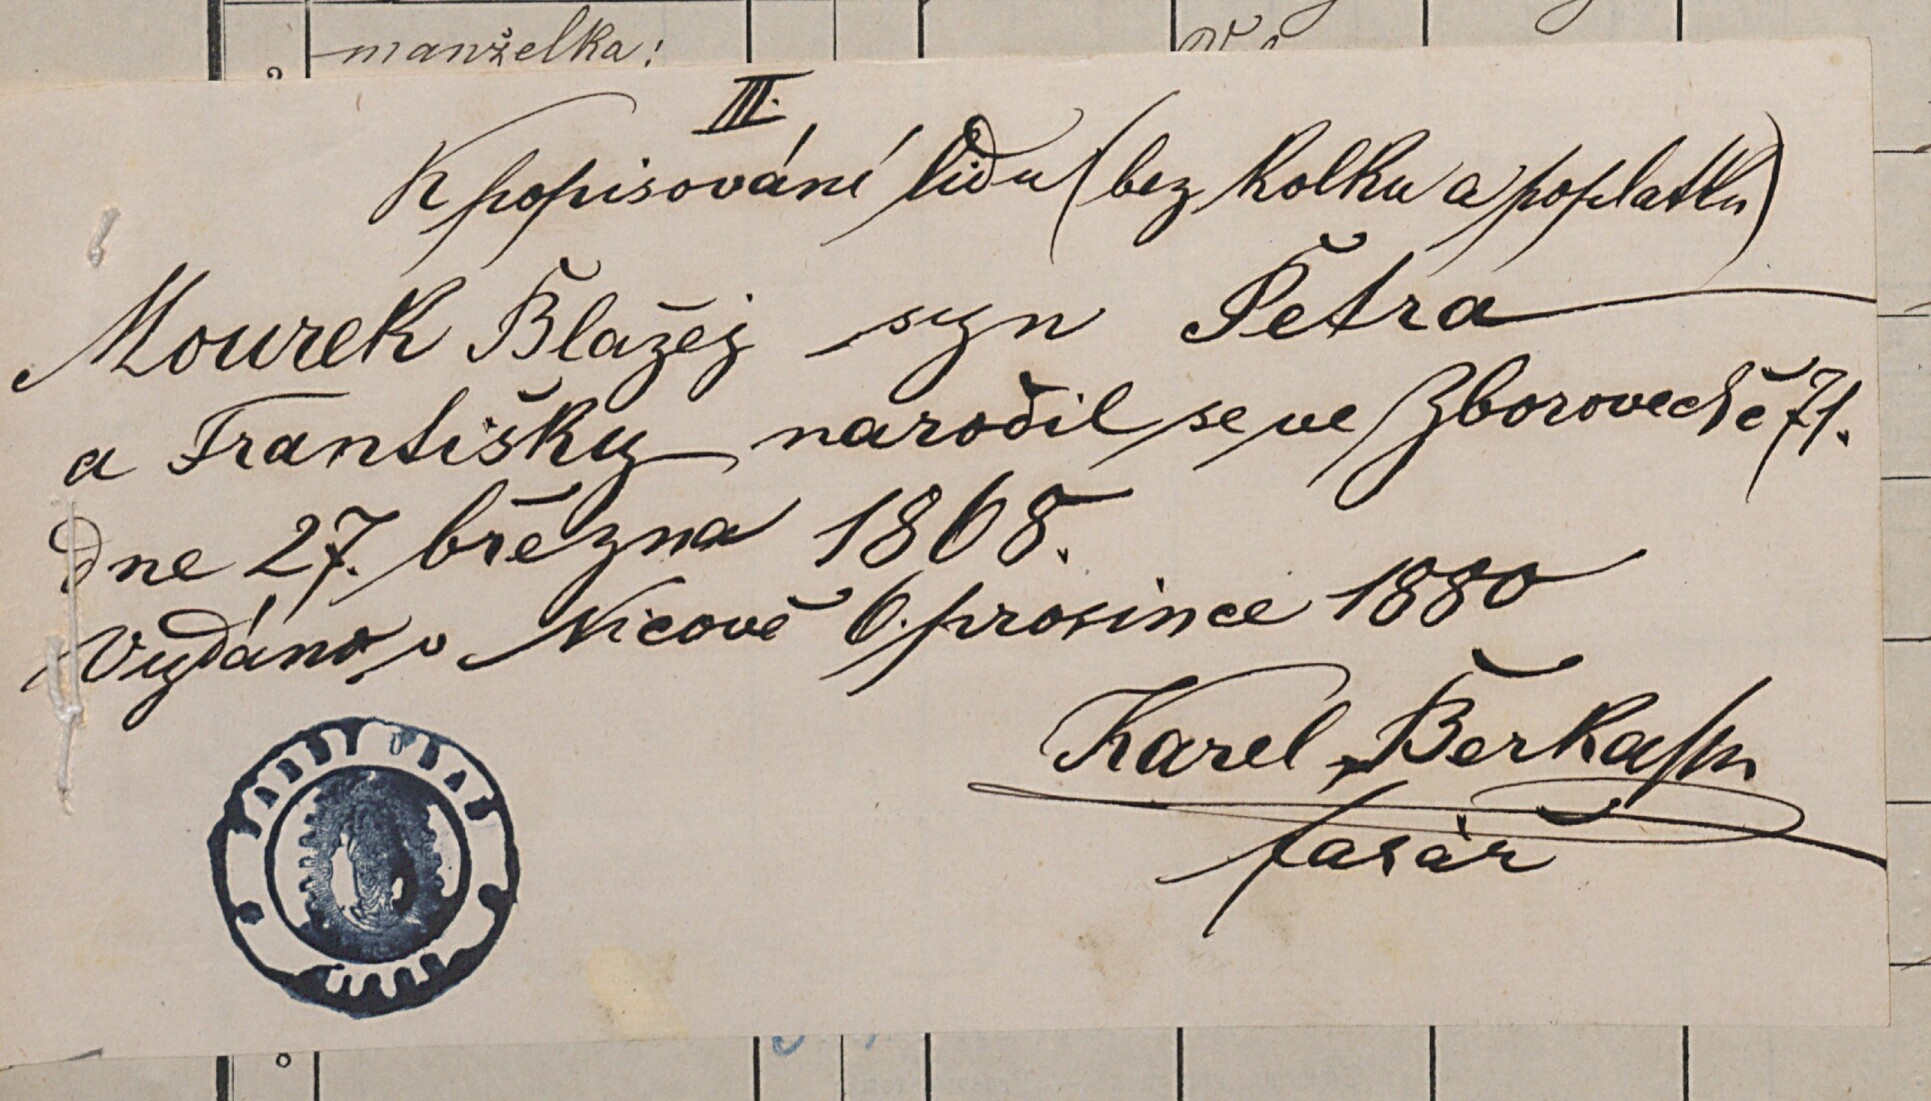 manželka:
III.
K popisování lidu (bez kolku a poplatku)
Mourek Blažej syn Petra
a Františky narodil se ve Zborovech č 71.
dne 27. března 1868.
Vydáno v Nicově 6. prosince 1880
Karel Berka
farář
FARNÍ ÚŘAD